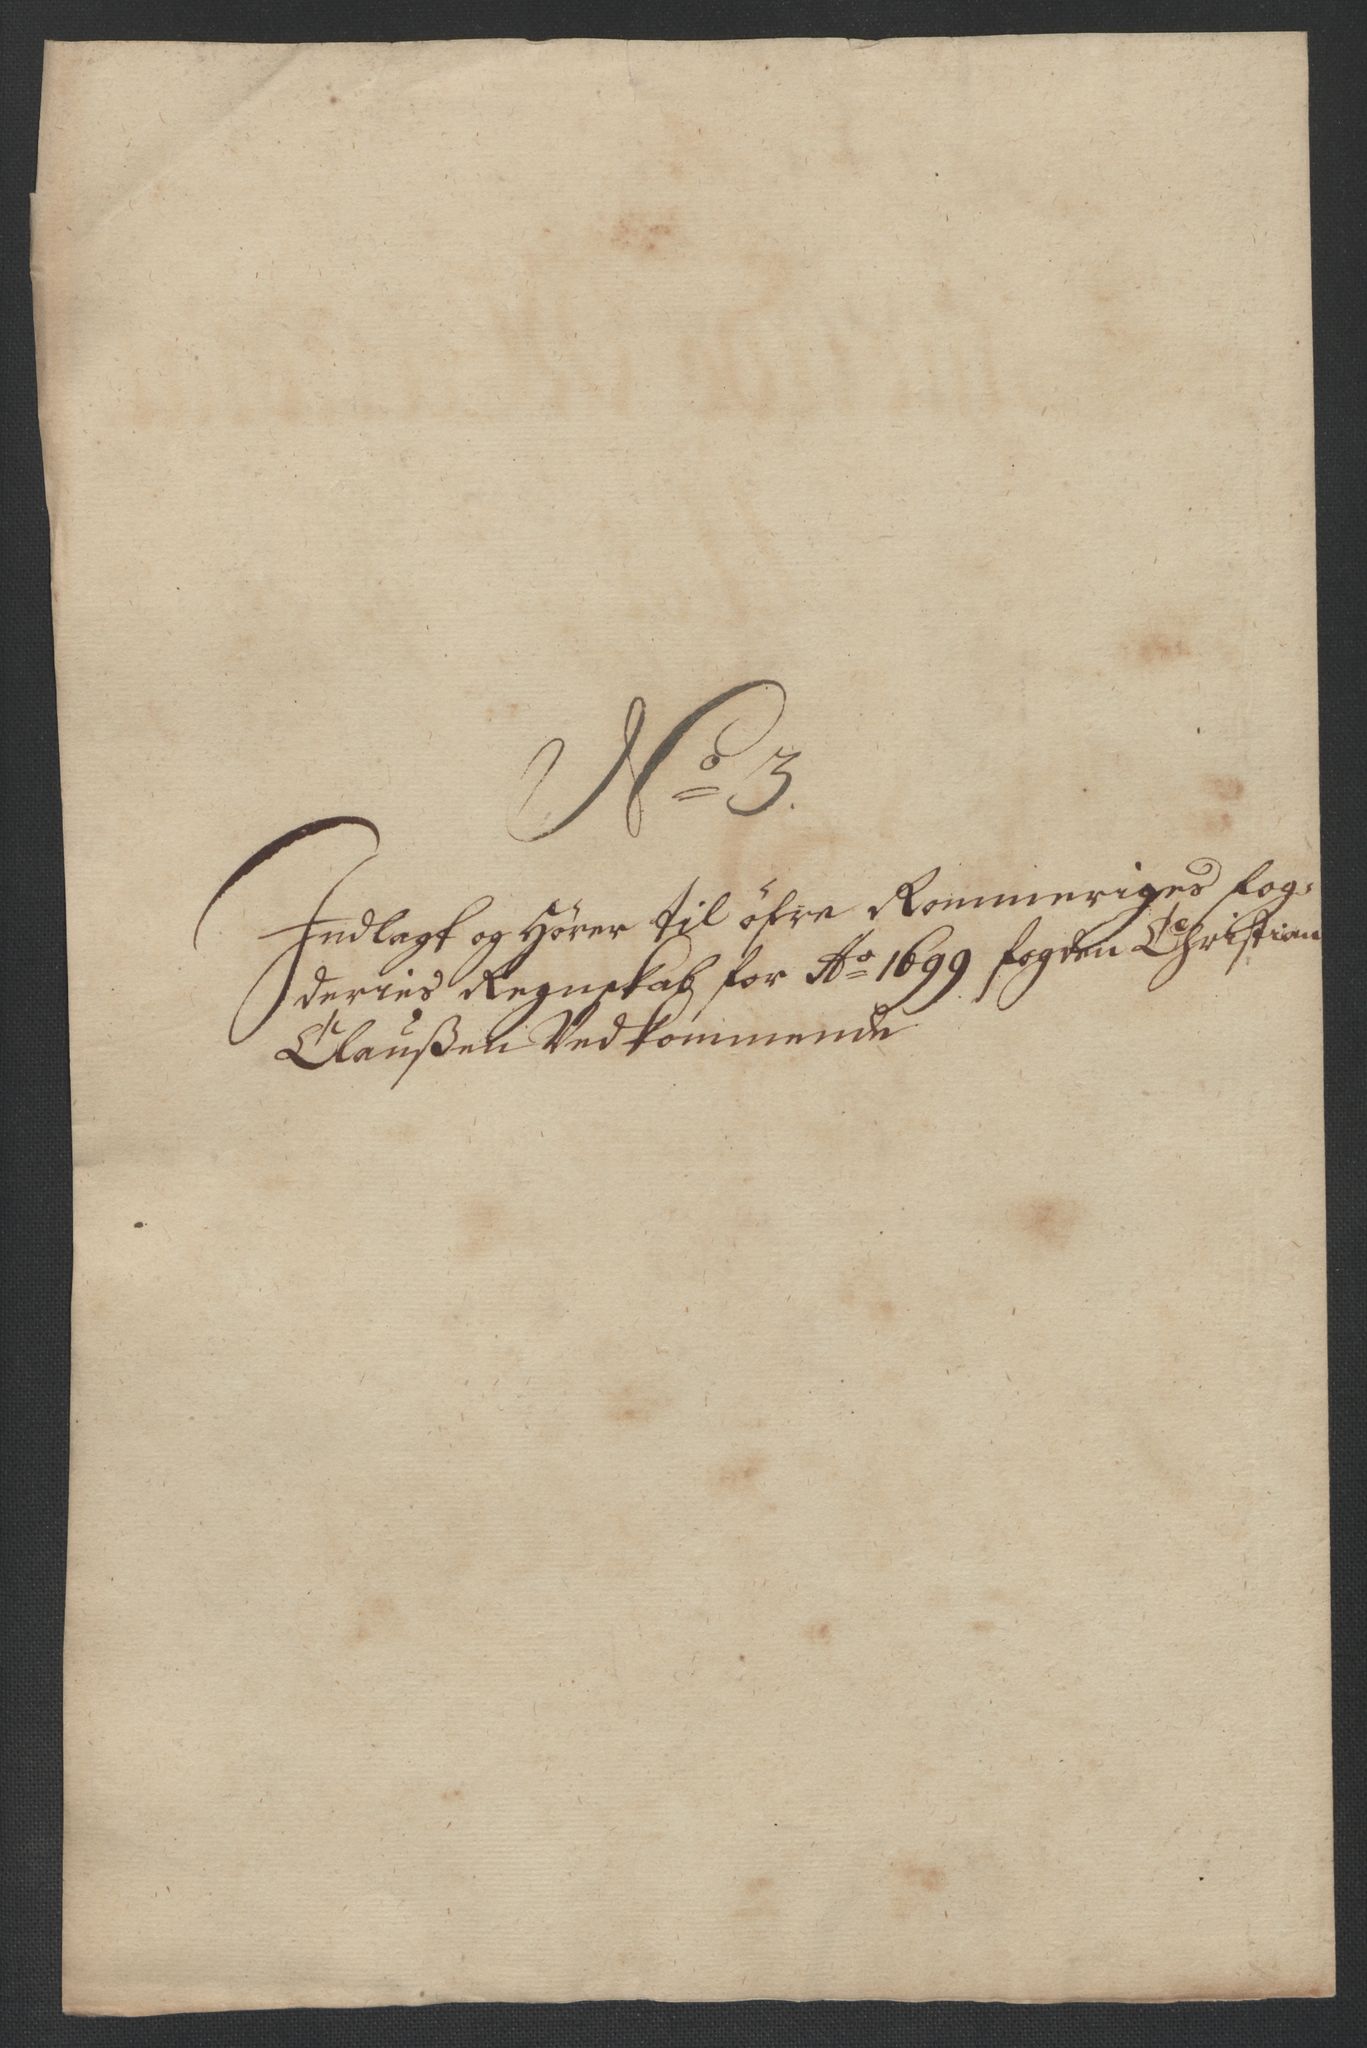 No 3.
Indlagt og Hörer til öfre Rommeriges fog=
deries Regnskab for Ao 1699 fogden Christian
Claußen Vedkommende